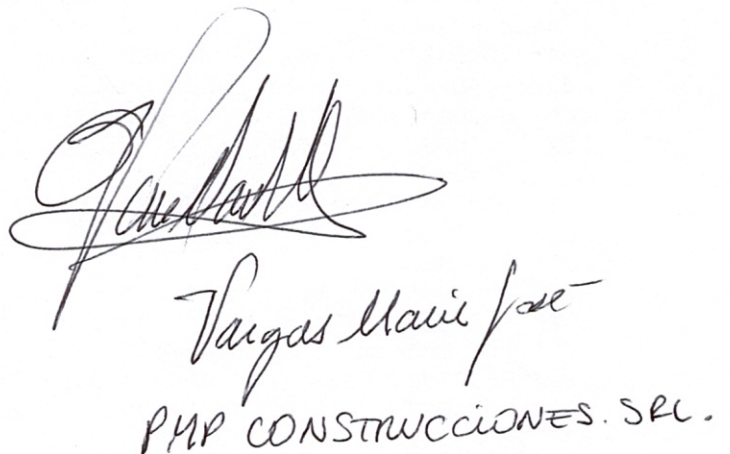 Vargas Maria José
PMP CONSTRUCCIONES. SRL.